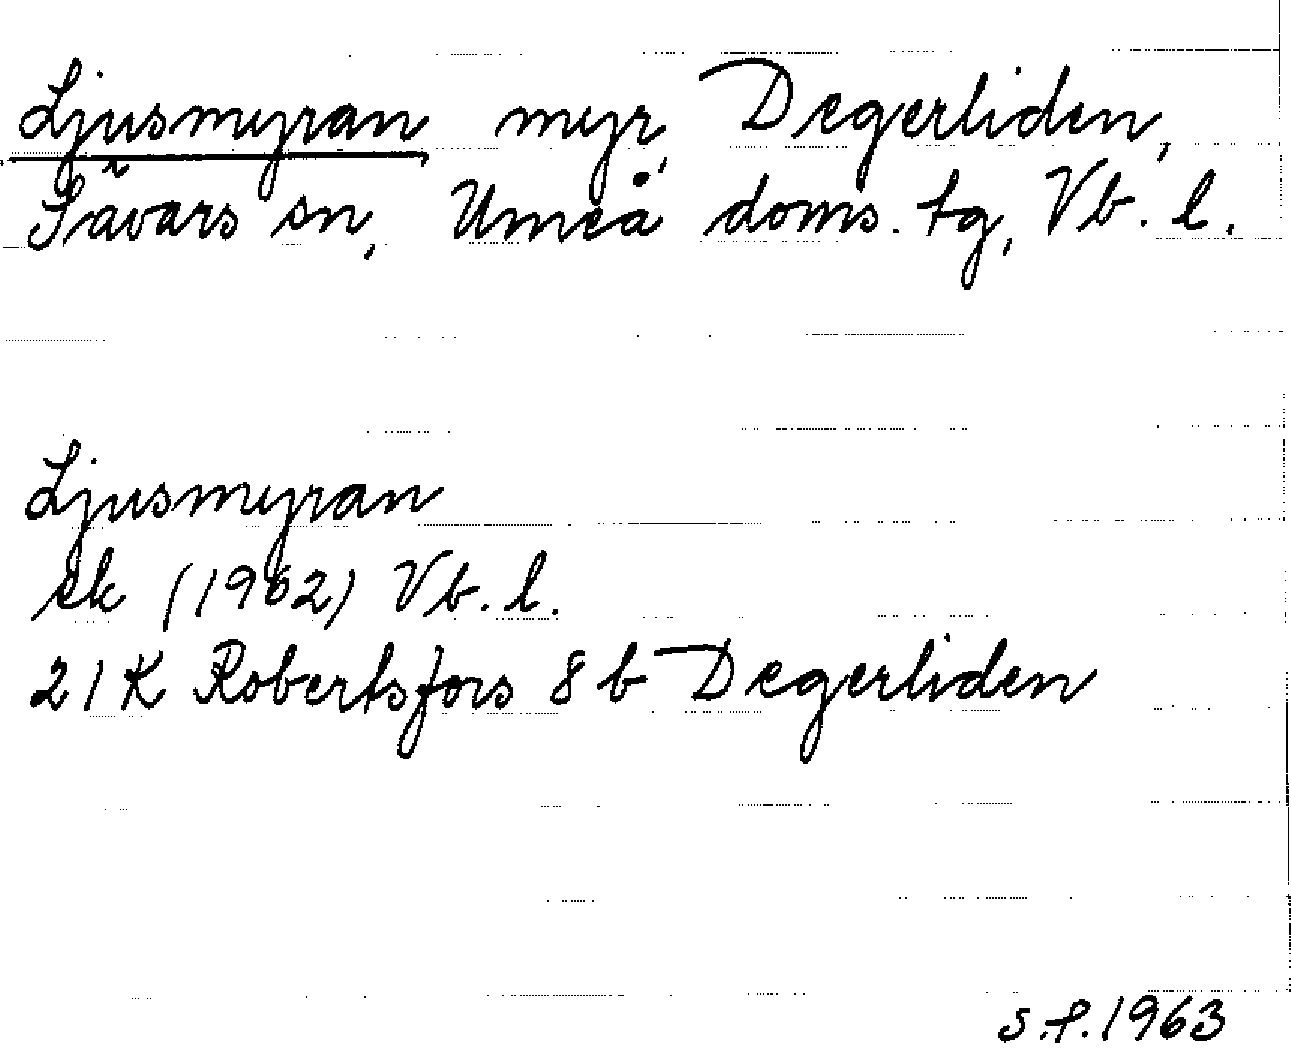 Ljusmyran, myr, Degerliden,
Sävars sn, Umeå doms. tg, Vb. l.
Ljusmyran
ek (1962) Vb. l.
21K Robertsfors 8 b Degerliden
S.f. 1963